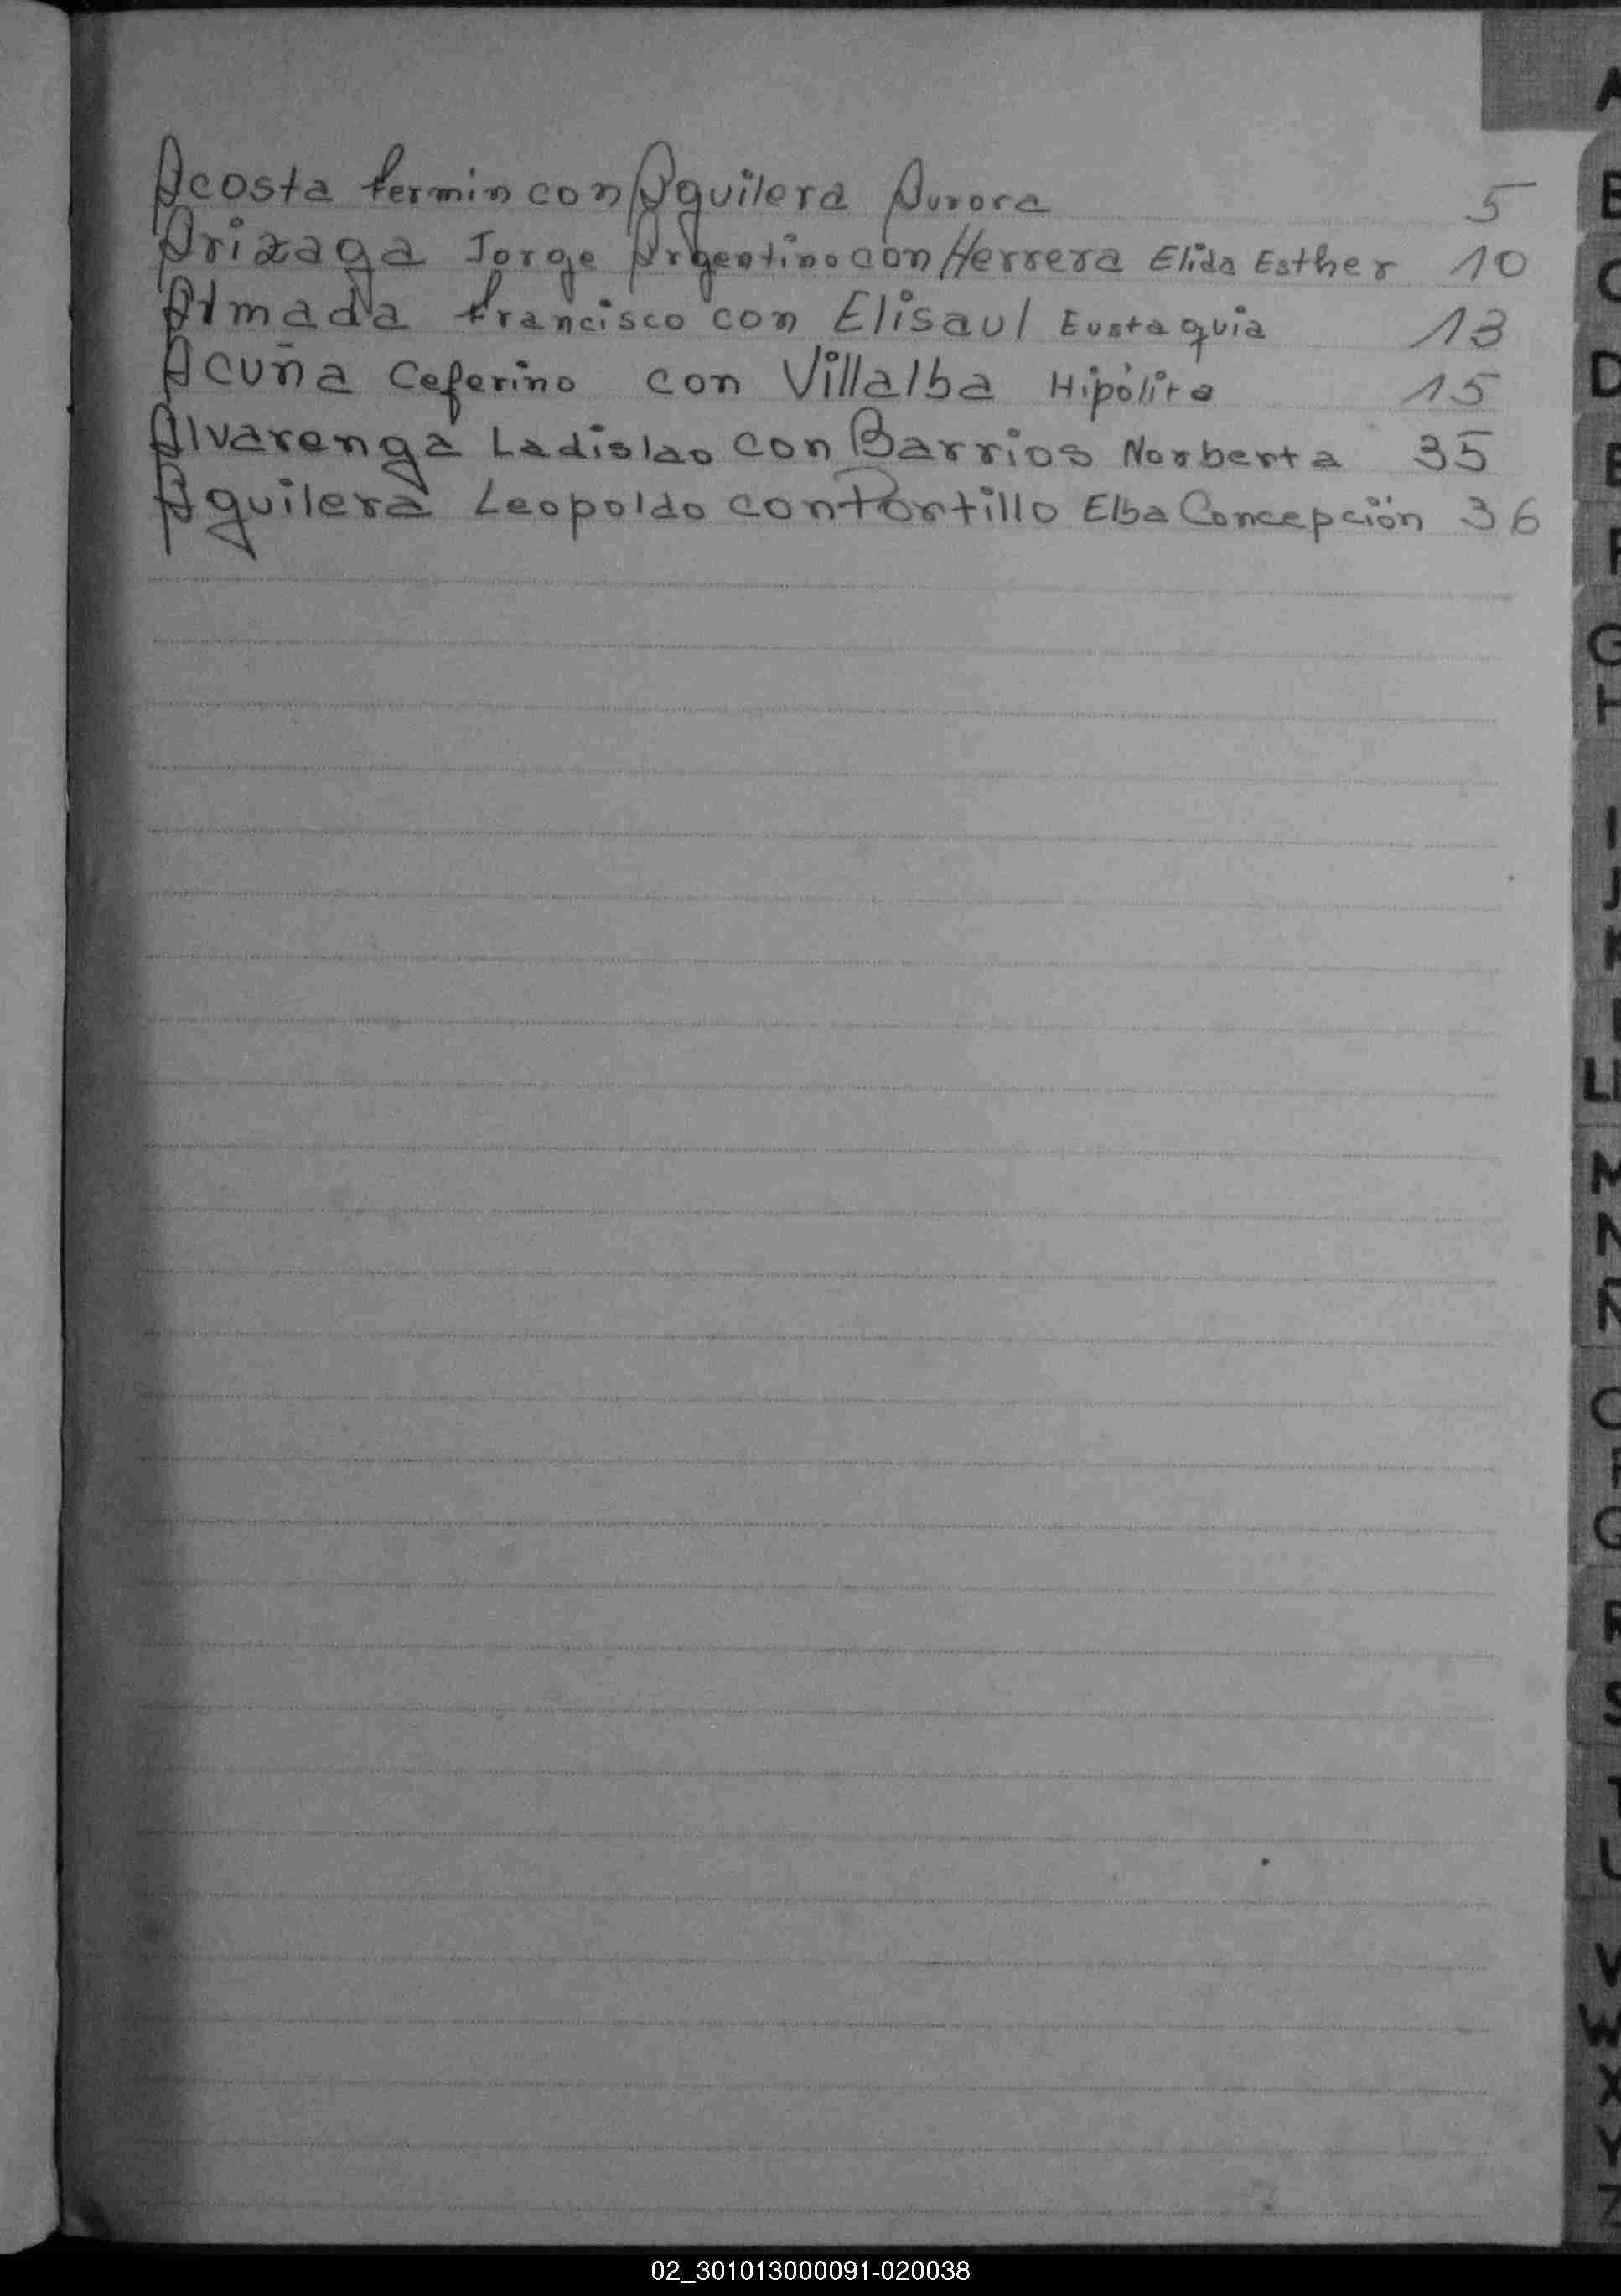 A
Acosta Fermin con Aguilera Aurora 5
Arizaga Jorge Argentino con Herrera Elida Esther 10
Almada Francisco con Elisaul Eustaquia 13
Acuña Ceferino con Villalba Hipólita 15
Alvarenga Ladislao con Barrios Norberta 35
Aguilera Leopoldo con Portillo Elba Concepción 36
B
C
D
E
F
G
H
I
J
K
L
LL
M
N
Ñ
O
P
Q
R
S
T
U
V
W
X
Y
Z
02_301013000091-020038